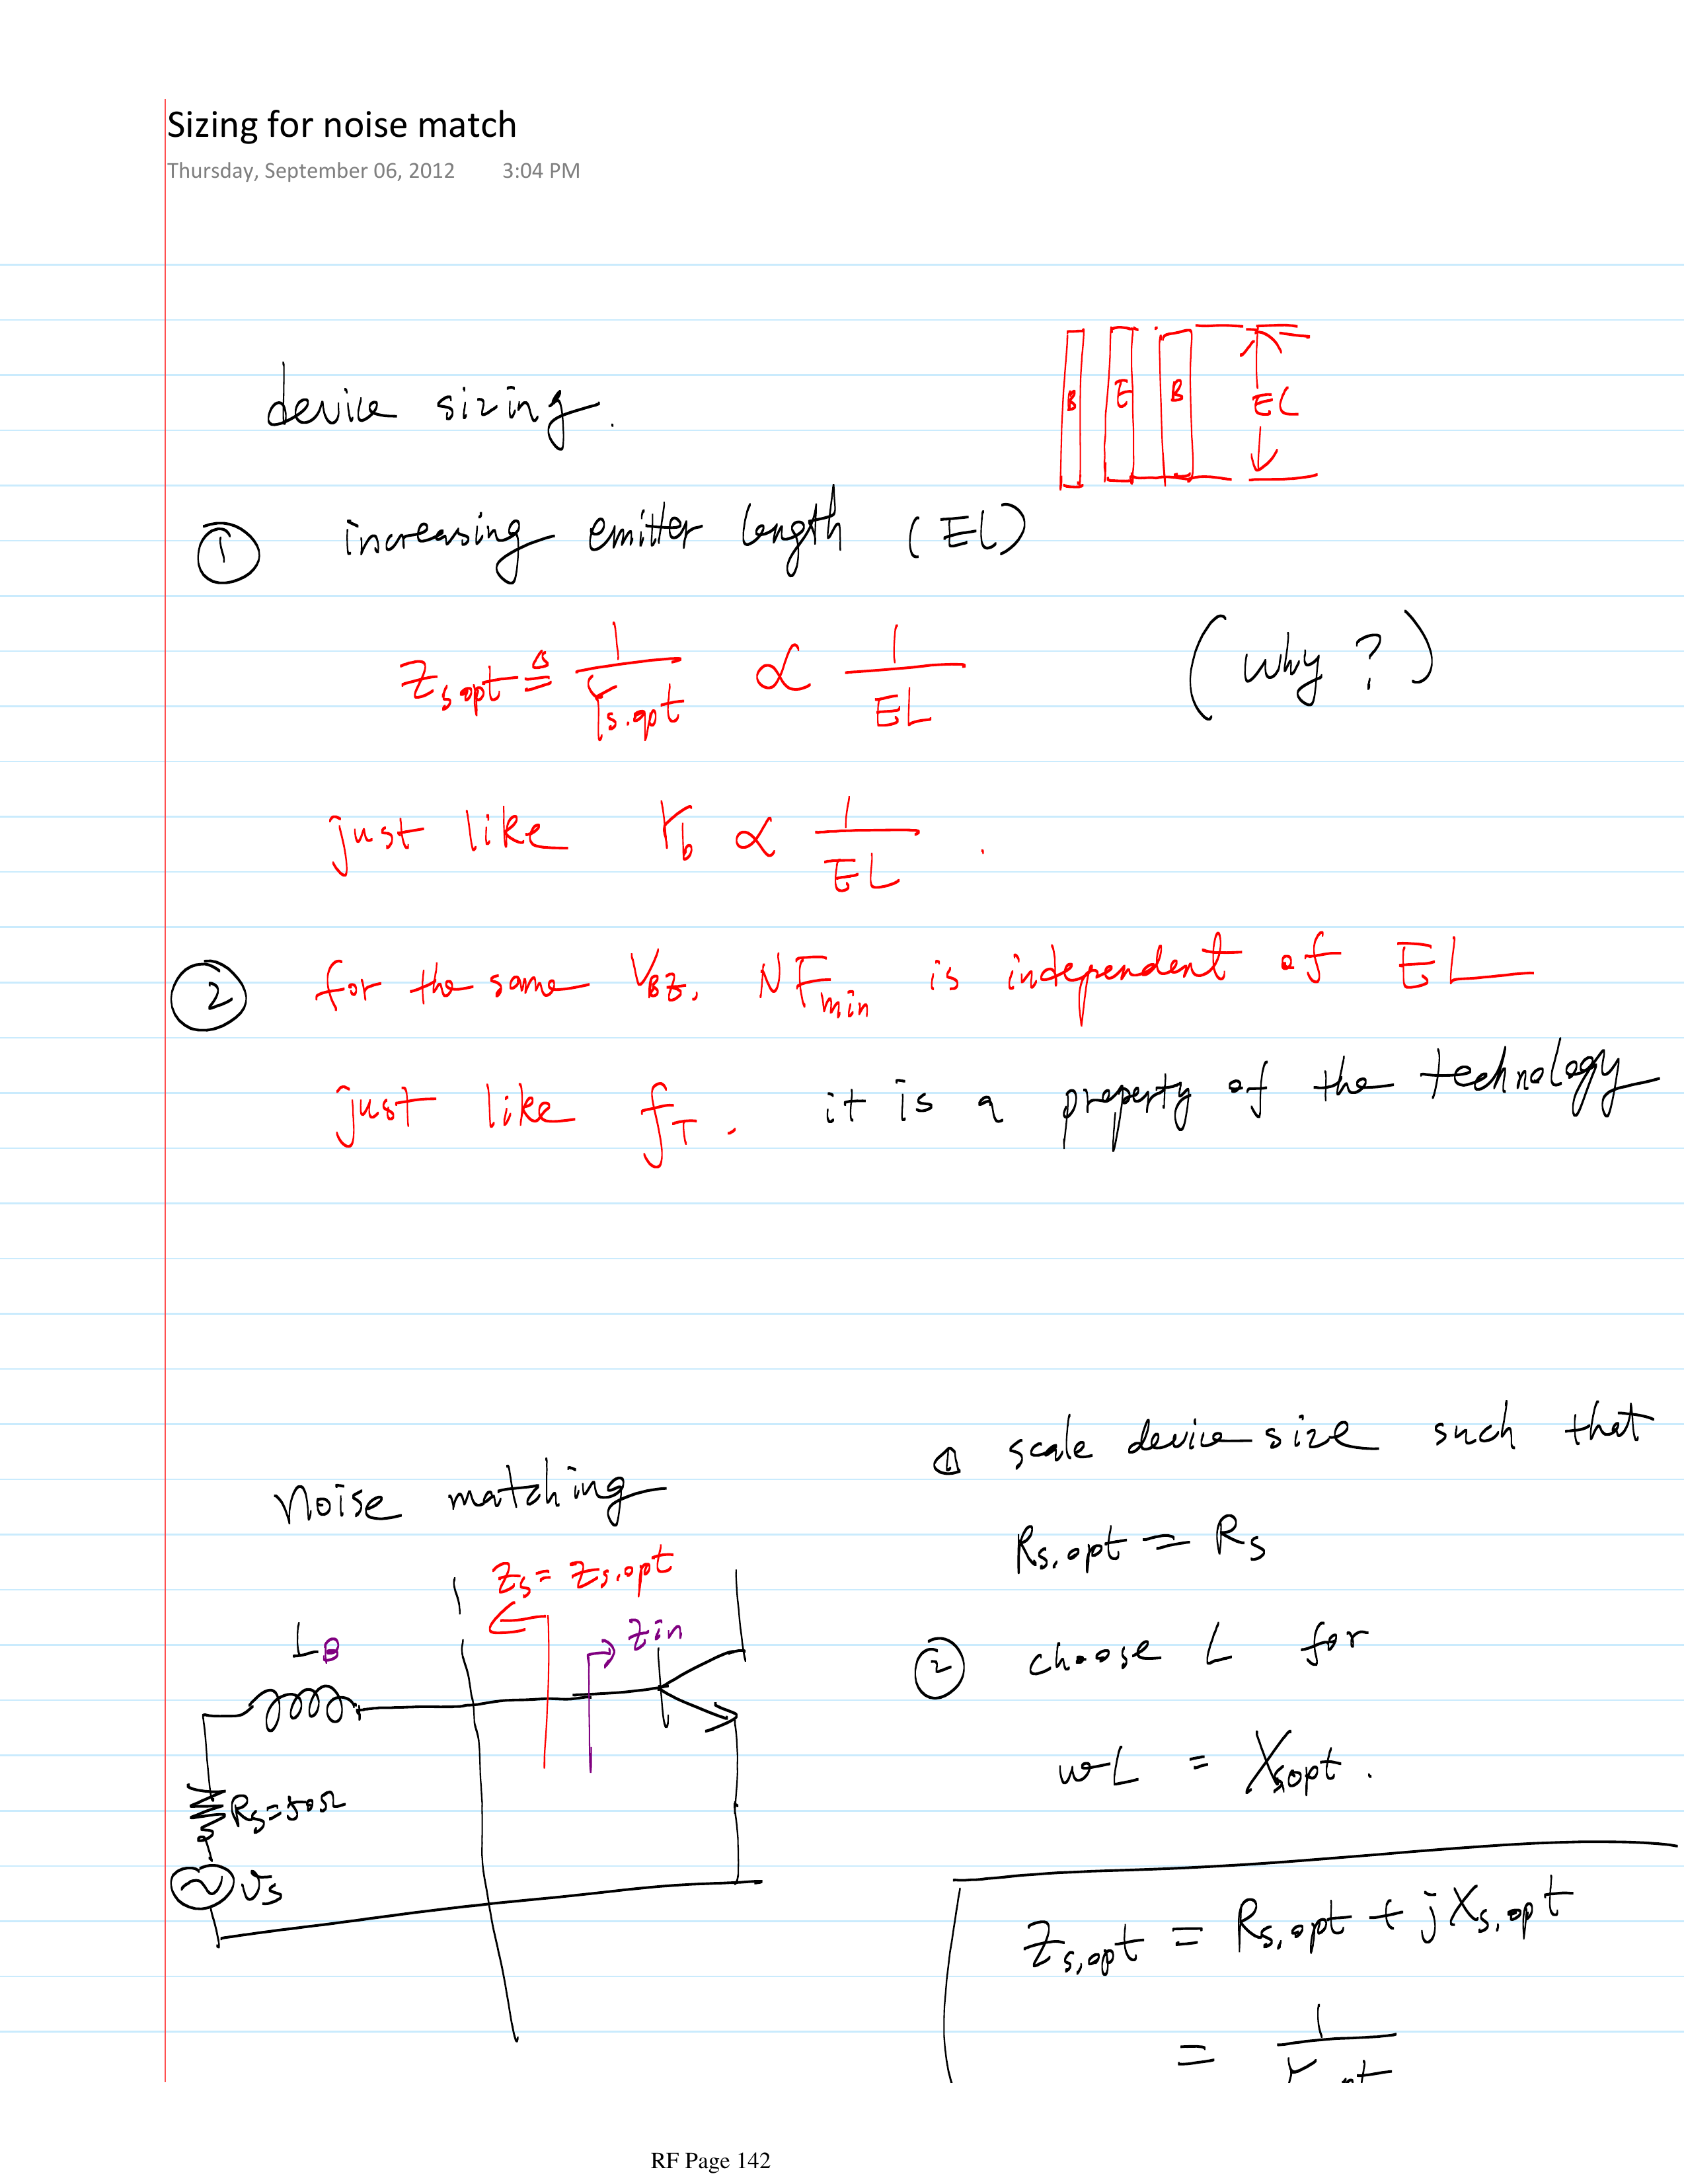 Sizing for noise match
Thursday, September 06, 2012 3:04 PM
B E B EL
device sizing.
① increasing emitter length (EL)
Zs,opt ≜ 1/Ys.opt ∝ 1/EL (why?)
just like rb ∝ 1/EL .
② for the same VBE, NFmin is independent of EL
just like fT. it is a property of the technology
Noise matching
Zs = Zs,opt
Zin
LB
Rs=50Ω
vs
① scale device size such that
Rs,opt = Rs
② choose L for
ωL = Xs,opt.
Zs,opt = Rs,opt + jXs,opt
= 1/
RF Page 142